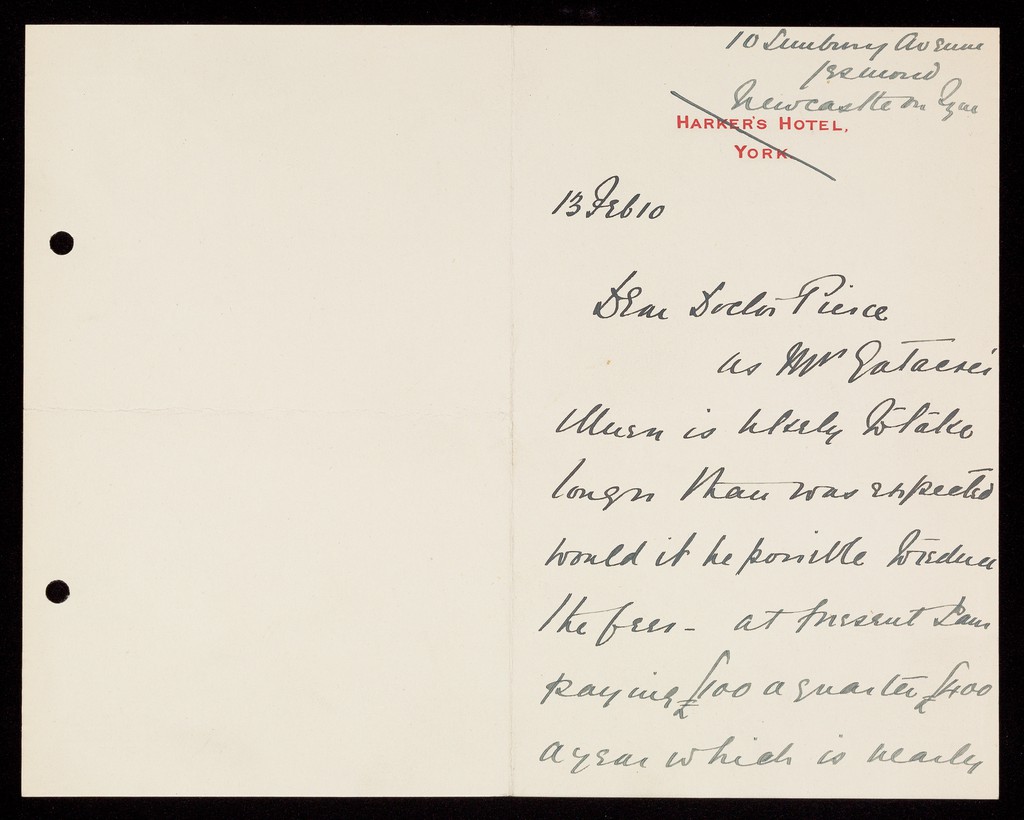 10 Sunbury Avenue
Jesmond
Newcastle on Tyne
HARKER'S HOTEL,
YORK.
13 Feb 10
Dear Doctor Pierce
as Mrs Gatacre's
illness is likely to take
longer than was expected
would it be possible to reduce
the fees - at present I am
paying £100 a quarter £400
a year which is nearly